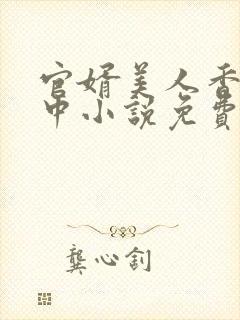 官婿美人香
中小說免費
龔心釗